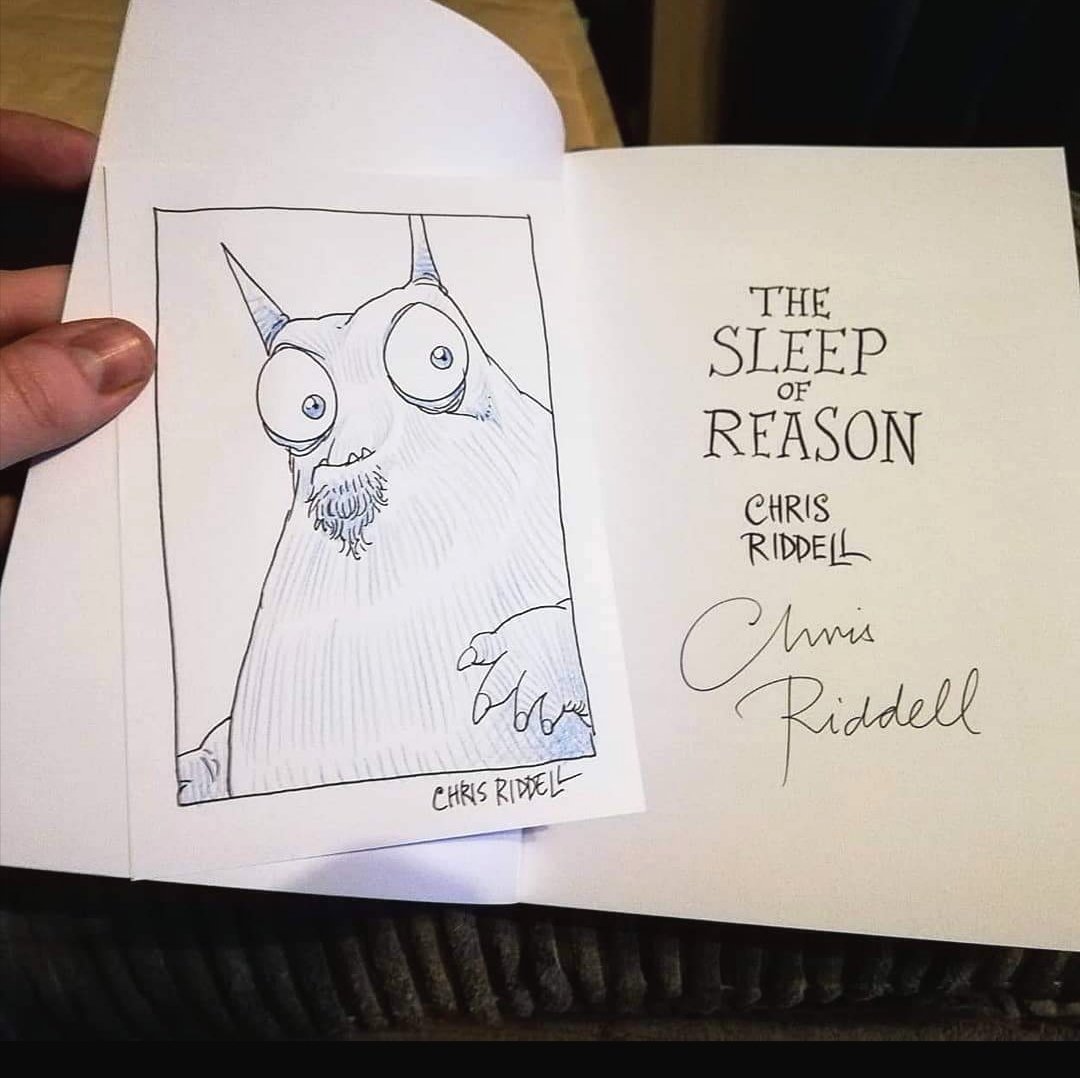 CHRIS RIDDELL
THE
SLEEP
OF
REASON
CHRIS
RIDDELL
Chris
Riddell